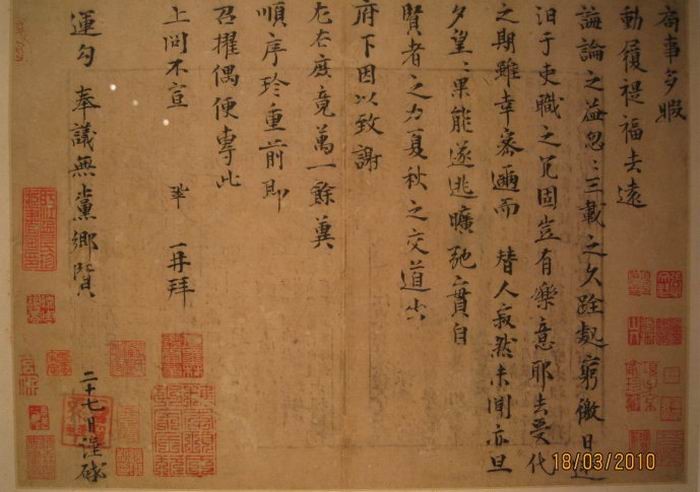 局事多暇
動履禔福去遠
誨論之益忽〻三載之久跧處窮徼日迷
汩于吏職之冗固豈有樂意耶去受代
之期雖幸密邇而替人寂然未聞亦旦
夕望〻果能遂逃曠弛實自
賢者之力夏秋之交道出
府下因以致謝
左右庶竟萬一餘冀
順序珍重前即
召擢偶便專此
上問不宣 鞏 再拜
運勾 奉議無黨鄉賢 二十七日謹啓
18/03/2010